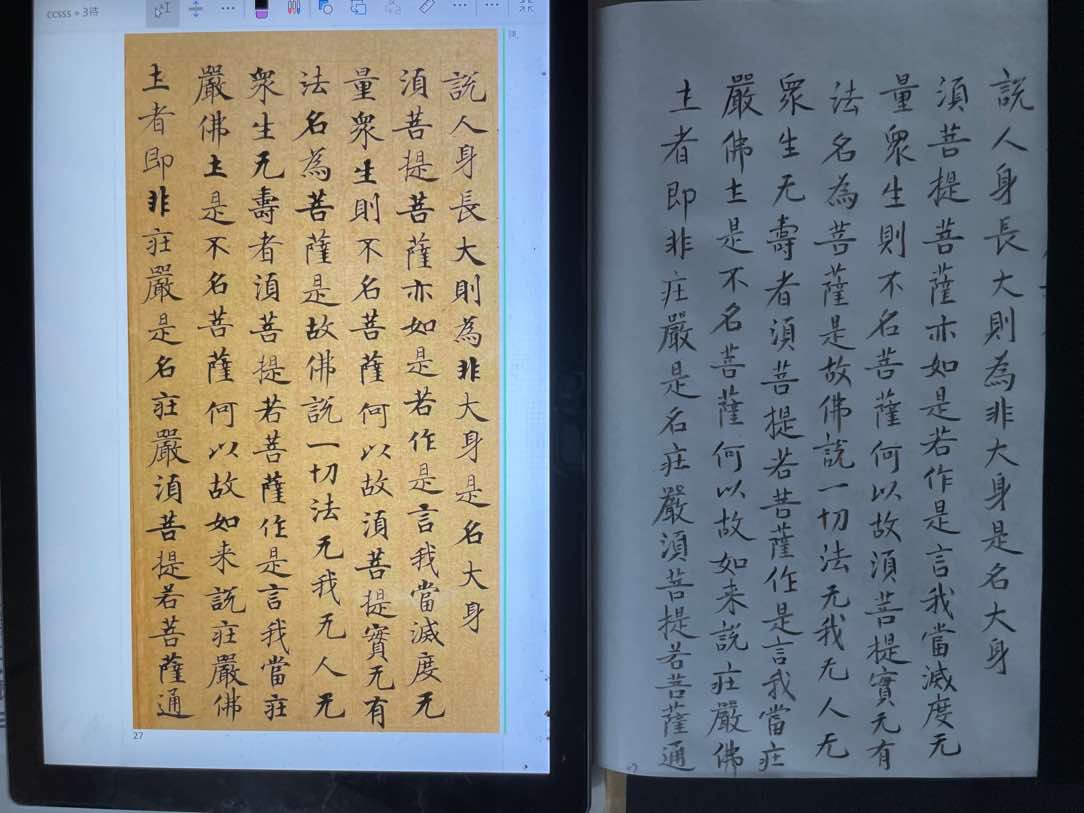 ccsss
3待
說人身長大則為非大身是名大身
湏菩提菩薩亦如是若作是言我當滅度无
量衆生則不名菩薩何以故湏菩提實无有
法名為菩薩是故佛說一切法无我无人无
衆生无壽者湏菩提若菩薩作是言我當莊
嚴佛土是不名菩薩何以故如来說莊嚴佛
土者即非莊嚴是名莊嚴湏菩提若菩薩通
27
說人身長大則為非大身是名大身
湏菩提菩薩亦如是若作是言我當滅度无
量衆生則不名菩薩何以故湏菩提實无有
法名為菩薩是故佛說一切法无我无人无
衆生无壽者湏菩提若菩薩作是言我當莊
嚴佛土是不名菩薩何以故如来說莊嚴佛
土者即非莊嚴是名莊嚴湏菩提若菩薩通